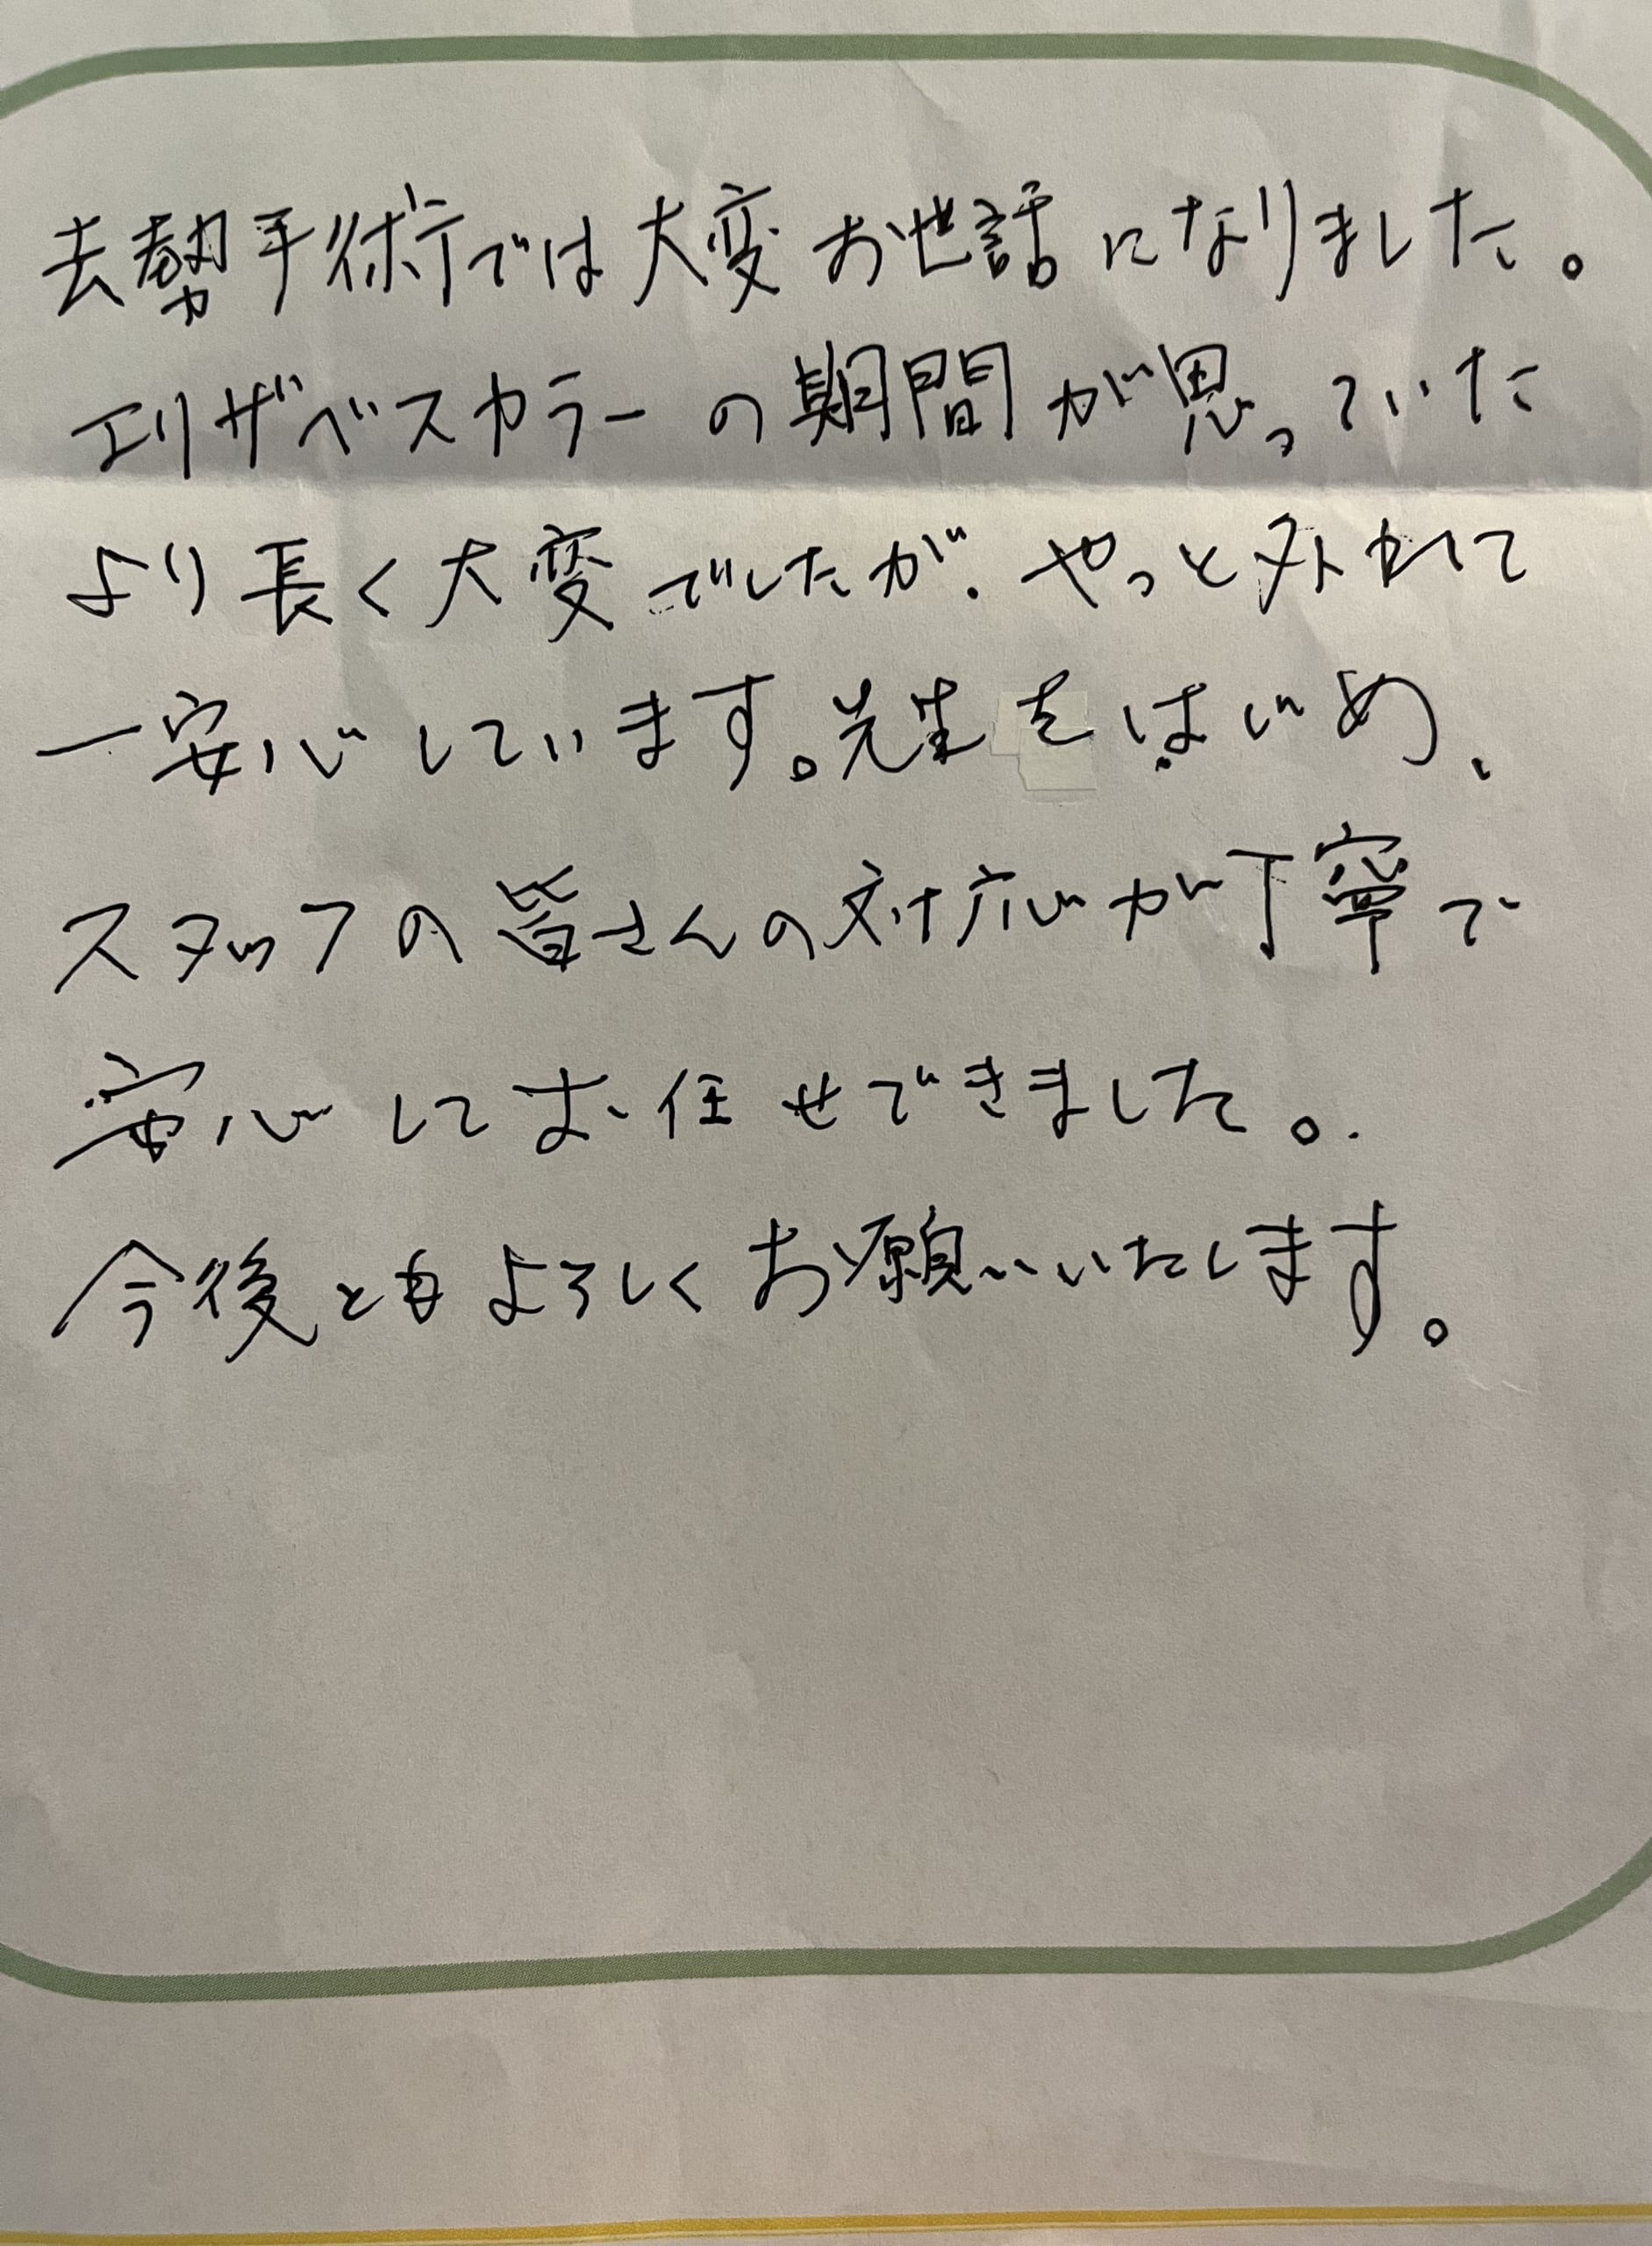 去勢手術では大変お世話になりました。
エリザベスカラーの期間が思っていた
より長く大変でしたが、やっと外れて
一安心しています。先生をはじめ、
スタッフの皆さんの対応が丁寧で
安心してお任せできました。
今後ともよろしくお願いいたします。